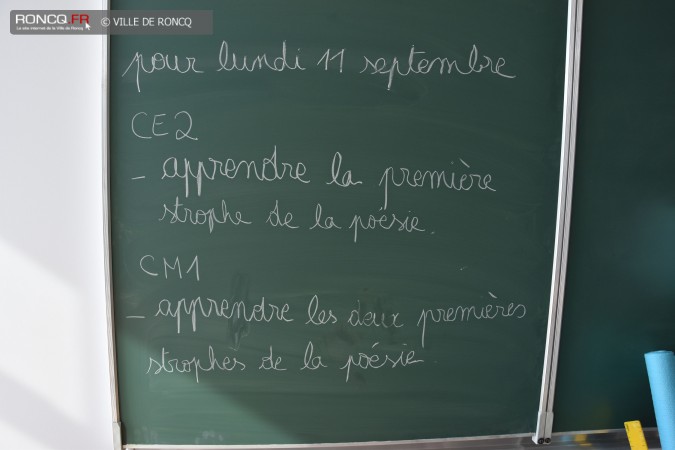 RONCQ.FR
Le site internet de la Ville de Roncq
© VILLE DE RONCQ
pour lundi 11 septembre
CE2
- apprendre la première
strophe de la poésie.
CM1
- apprendre les deux premières
strophes de la poésie.